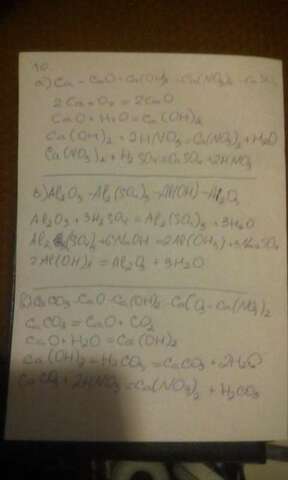 10.
a) Ca - CaO - Ca(OH)2 - Ca(NO3)2 - CaSO4
2Ca + O2 = 2CaO
CaO + H2O = Ca(OH)2
Ca(OH)2 + 2HNO3 = Ca(NO3)2 + H2O
Ca(NO3)2 + H2SO4 = CaSO4 + 2HNO3
Al2O3 - Al2(SO4)3 - Al(OH) - Al2O3
Al2O3 + 3H2SO4 = Al2(SO4)3 + 3H2O
Al2(SO4)3 + 6NaOH = 2Al(OH3) + 3Na2SO4
2Al(OH)3 = Al2O3 + 3H2O
CaCO3 - CaO - Ca(OH)2 - CaCO3 - Ca(NO3)2
CaCO3 = CaO + CO2
CaO + H2O = Ca(OH)2
Ca(OH)2 + H2CO3 = CaCO3 + 2H2O
CaCO3 + 2HNO3 = Ca(NO3)2 + H2CO3